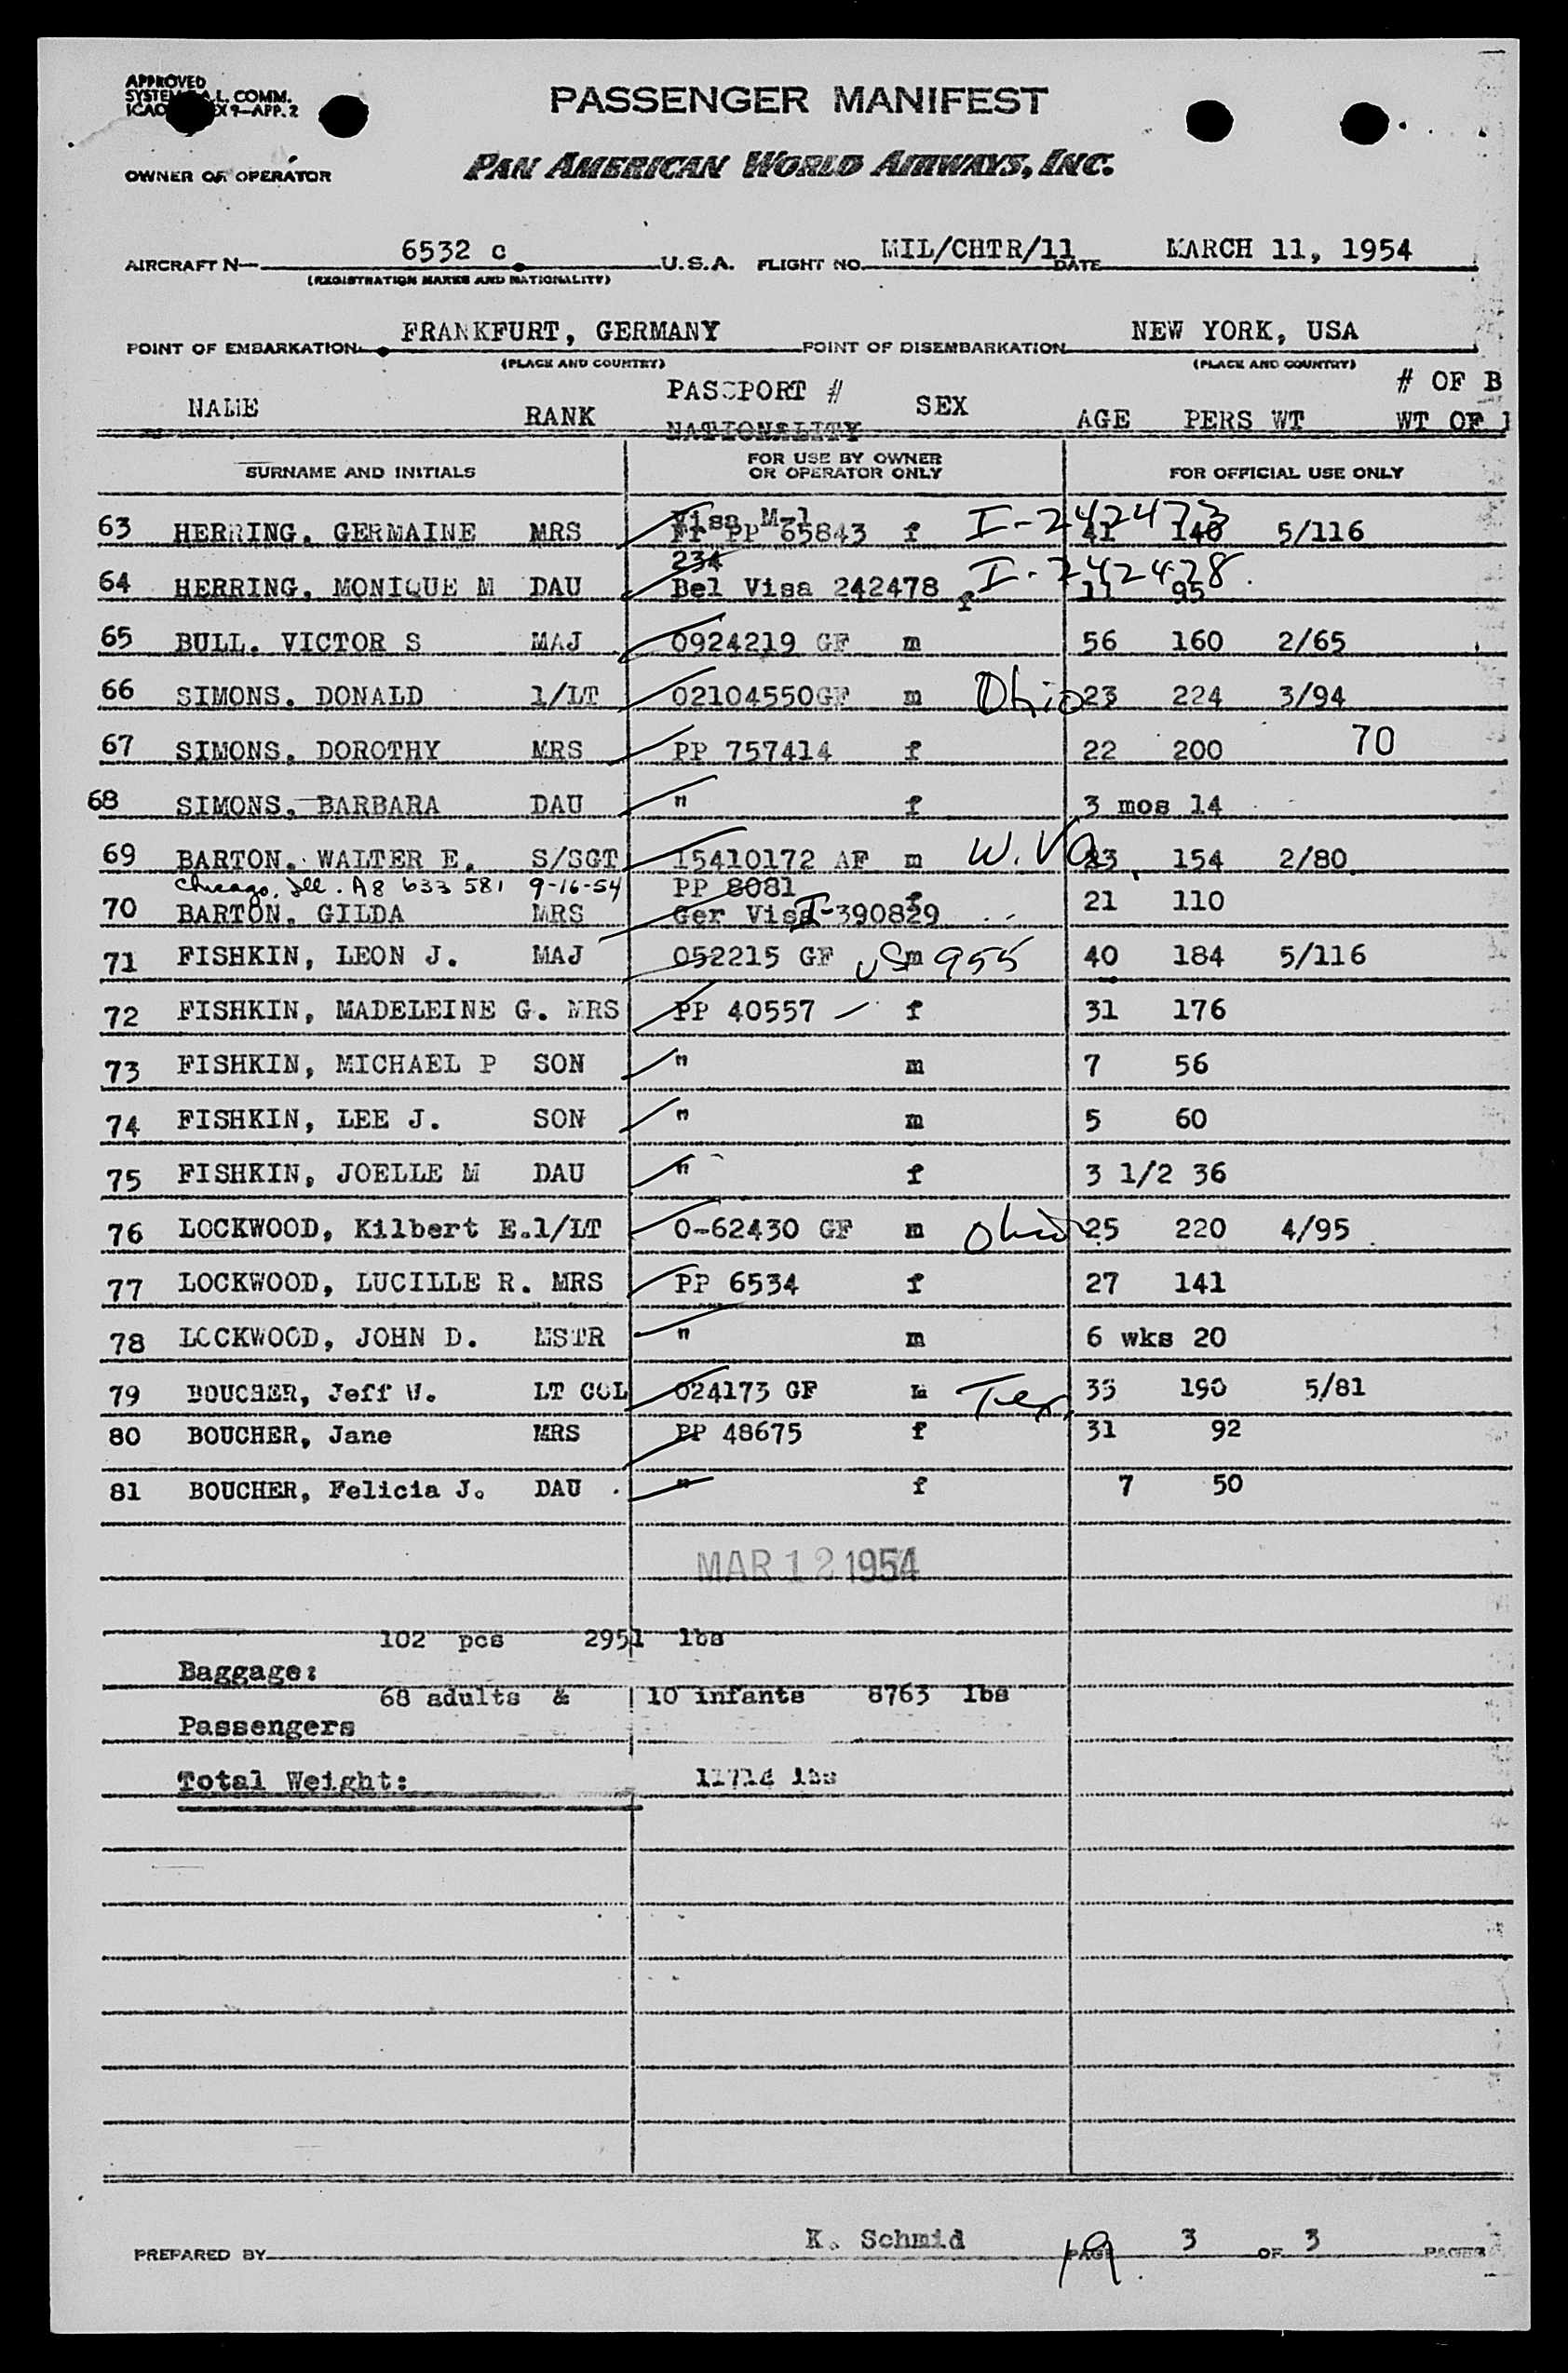 APPROVED
SYSTEM A.L. COMM.
ICAO EX 9—APP. 2
PASSENGER MANIFEST
OWNER OR OPERATOR PAN AMERICAN WORLD AIRWAYS, INC.
AIRCRAFT N— 6532 c U.S.A. FLIGHT NO. MIL/CHTR/11 DATE MARCH 11, 1954
(REGISTRATION MARKS AND NATIONALITY)
POINT OF EMBARKATION FRANKFURT, GERMANY POINT OF DISEMBARKATION NEW YORK, USA
(PLACE AND COUNTRY) (PLACE AND COUNTRY)
NAME RANK PASSPORT # SEX AGE PERS WT # OF B
NATIONALITY WT OF
SURNAME AND INITIALS FOR USE BY OWNER OR OPERATOR ONLY FOR OFFICIAL USE ONLY
Visa M-1
63 HERRING, GERMAINE MRS Fr PP 65843 f I-242473 41 140 5/116
234
64 HERRING, MONIQUE M DAU Bel Visa 242478 f I-242478. 11 95
65 BULL, VICTOR S MAJ 0924219 GF m 56 160 2/65
66 SIMONS, DONALD 1/LT 02104550GF m Ohio 23 224 3/94
67 SIMONS, DOROTHY MRS PP 757414 f 22 200 70
68 SIMONS, BARBARA DAU " f 3 mos 14
69 BARTON, WALTER E. S/SGT 15410172 AF m W. Va 23 154 2/80
Chicago, Ill. A8 633 581 9-16-54 PP 8081
70 BARTON, GILDA MRS Ger Visa I-390829 f 21 110
71 FISHKIN, LEON J. MAJ 052215 GF m US 955 40 184 5/116
72 FISHKIN, MADELEINE G. MRS PP 40557 f 31 176
73 FISHKIN, MICHAEL P SON " m 7 56
74 FISHKIN, LEE J. SON " m 5 60
75 FISHKIN, JOELLE M DAU " f 3 1/2 36
76 LOCKWOOD, Kilbert E. 1/LT O-62430 GF m Ohio 25 220 4/95
77 LOCKWOOD, LUCILLE R. MRS PP 6534 f 27 141
78 LOCKWOOD, JOHN D. MSTR " m 6 wks 20
79 BOUCHER, Jeff W. LT COL 024173 GF m Tex. 35 190 5/81
80 BOUCHER, Jane MRS PP 48675 f 31 92
81 BOUCHER, Felicia J. DAU " f 7 50
MAR 12 1954
102 pcs 2951 lbs
Baggage:
68 adults & 10 infants 8763 lbs
Passengers
Total Weight: 11714 lbs
PREPARED BY K. Schmid 19. PAGE 3 OF 3 PAGES